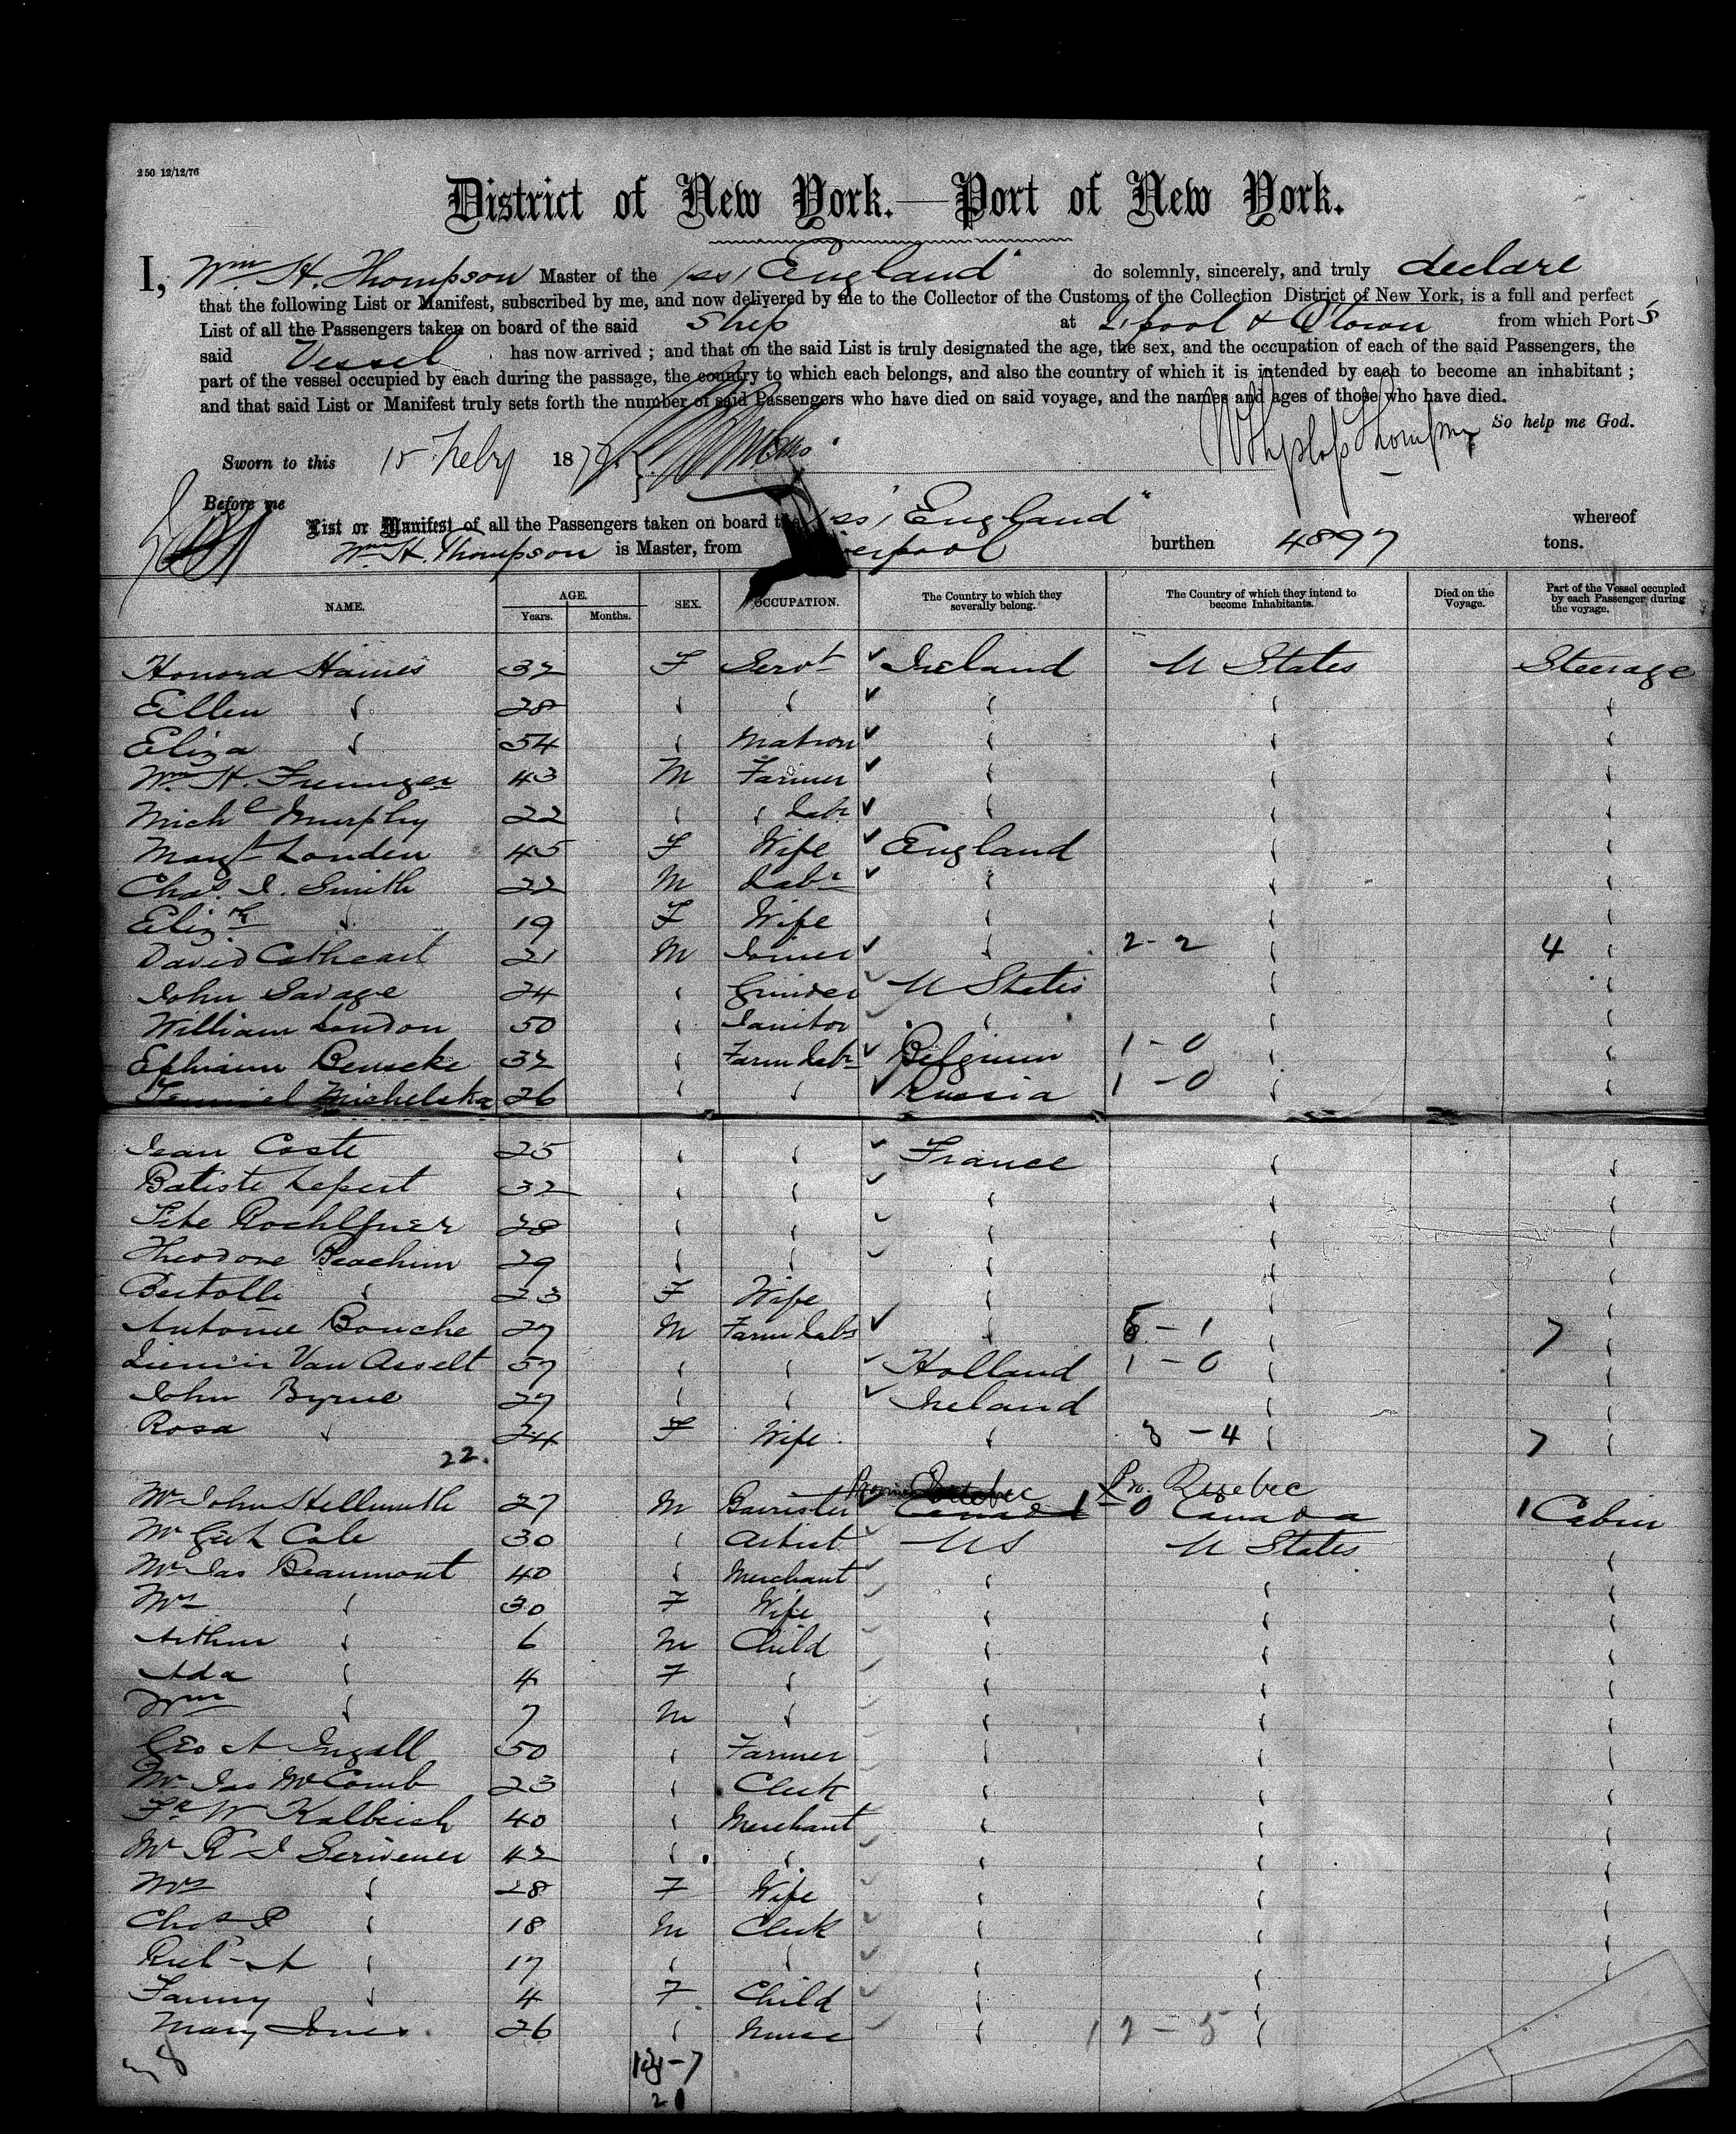 250 12/12/76
District of New York.—Port of New York.
I, Wm. H. Thompson Master of the "ss" England" do solemnly, sincerely, and truly declare
that the following List or Manifest, subscribed by me, and now delivered by me to the Collector of the Customs of the Collection District of New York, is a full and perfect
List of all the Passengers taken on board of the said Ship at L'pool & Q'town from which Ports
said Vessel has now arrived ; and that on the said List is truly designated the age, the sex, and the occupation of each of the said Passengers, the
part of the vessel occupied by each during the passage, the country to which each belongs, and also the country of which it is intended by each to become an inhabitant ;
and that said List or Manifest truly sets forth the number of said Passengers who have died on said voyage, and the names and ages of those who have died.
So help me God.
Sworn to this 15 Feby 1879 Thompson
Before me
List or Manifest of all the Passengers taken on board the "ss" England" whereof
Wm. H. Thompson is Master, from Liverpool burthen 4897 tons.
NAME. AGE. Years. Months. SEX. OCCUPATION. The Country to which they severally belong. The Country of which they intend to become Inhabitants. Died on the Voyage. Part of the Vessel occupied by each Passenger during the voyage.
Honora Haines 32 F Servt Ireland U States Steerage
Ellen " 28 " " " " "
Eliza " 54 " Matron " " "
Wm H. 43 M Farmer " " "
Michl Murphy 22 " " Labr " " "
Margt Londen 45 F Wife England " "
Chas. I. Smith 22 M Labr " " "
Elizth " 19 F Wife " " "
David Cathcart 21 M Joiner " 2-2 " 4 "
John Savage 24 " U States " "
William London 50 " Janitor " " "
Ephraim 32 " Farm Labr Belgium 1-0 " "
Michelska 26 " " Russia 1-0 " "
Jean Coste 25 " " France " "
Batiste 32 " " " " "
28 " " " " "
Theodore Beachim 29 " " " " "
" 23 F Wife " " "
Antonie Bouche 27 M Farm Labr " 5-1 " 7 "
Van Asselt 57 " " Holland 1-0 " "
John Byrne 27 " " Ireland " "
Rosa " 24 F Wife " 3-4 " 7 "
22.
Pro. Quebec
Mr John Hellmuth 27 M Barrister Canada 1 0 Canada 1 Cabin
Mr L Cole 30 " Artist US U States "
Mr Jas Beaumont 40 " Merchant " " "
Mrs " 30 F Wife " " "
Arthur " 6 M Child " " "
Ada " 4 F " " " "
Wm " 7 M " " " "
Geo A Ingall 50 " Farmer " " "
Mr Jas McComb 23 " Clerk " " "
W Kalbeish 40 " Merchant " " "
Mr R I Scrivener 42 " " " " "
Mrs " 28 F Wife " " "
Chas P " 18 M Clerk " " "
Richd A " 17 " " " " "
Fanny " 4 F Child " " "
Mary Jones 26 " Nurse " 12-5 "
38
21